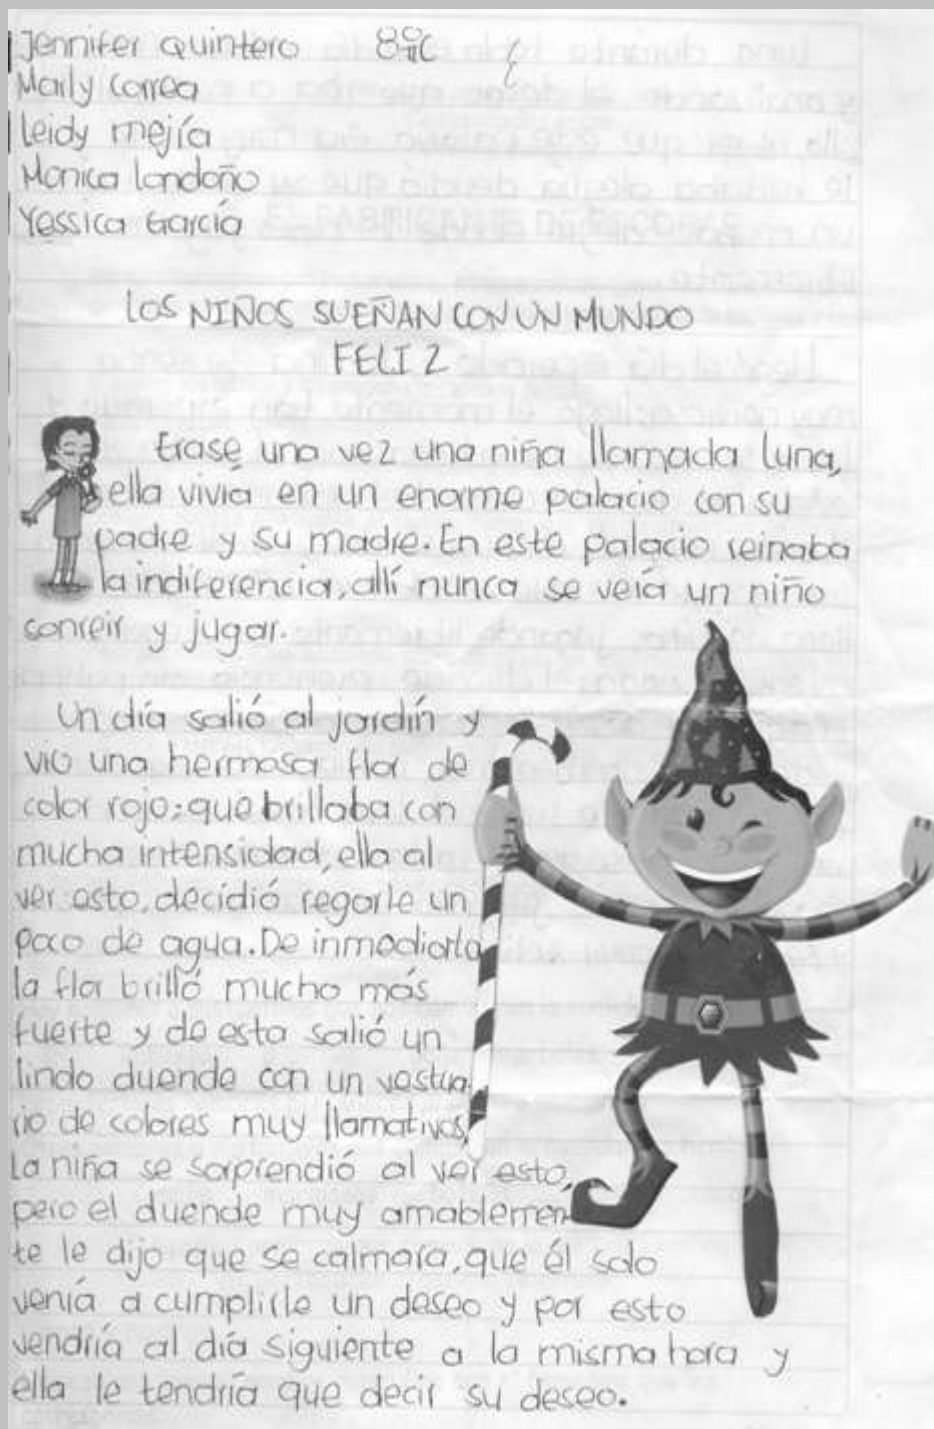 Jennifer Quintero 8ºC
Marly Correa
Leidy mejía
Monica Londoño
Yessica García
LOS NIÑOS SUEÑAN CON UN MUNDO
FELIZ
Erase una vez una niña llamada luna,
ella vivia en un enorme palacio con su
padre y su madre. En este palacio reinaba
la indiferencia, allí nunca se veía un niño
sonreir y jugar.
Un día salió al jardín y
vio una hermosa flor de
color rojo; que brillaba con
mucha intensidad, ella al
ver esto, decidió regarle un
poco de agua. De inmediato
la flor brilló mucho más
fuerte y de esta salió un
lindo duende con un vestua
rio de colores muy llamativos,
La niña se sorprendió al ver esto,
pero el duende muy amablemen
te le dijo que se calmara, que él solo
venía a cumplirle un deseo y por esto
vendría al día siguiente a la misma hora y
ella le tendría que decir su deseo.